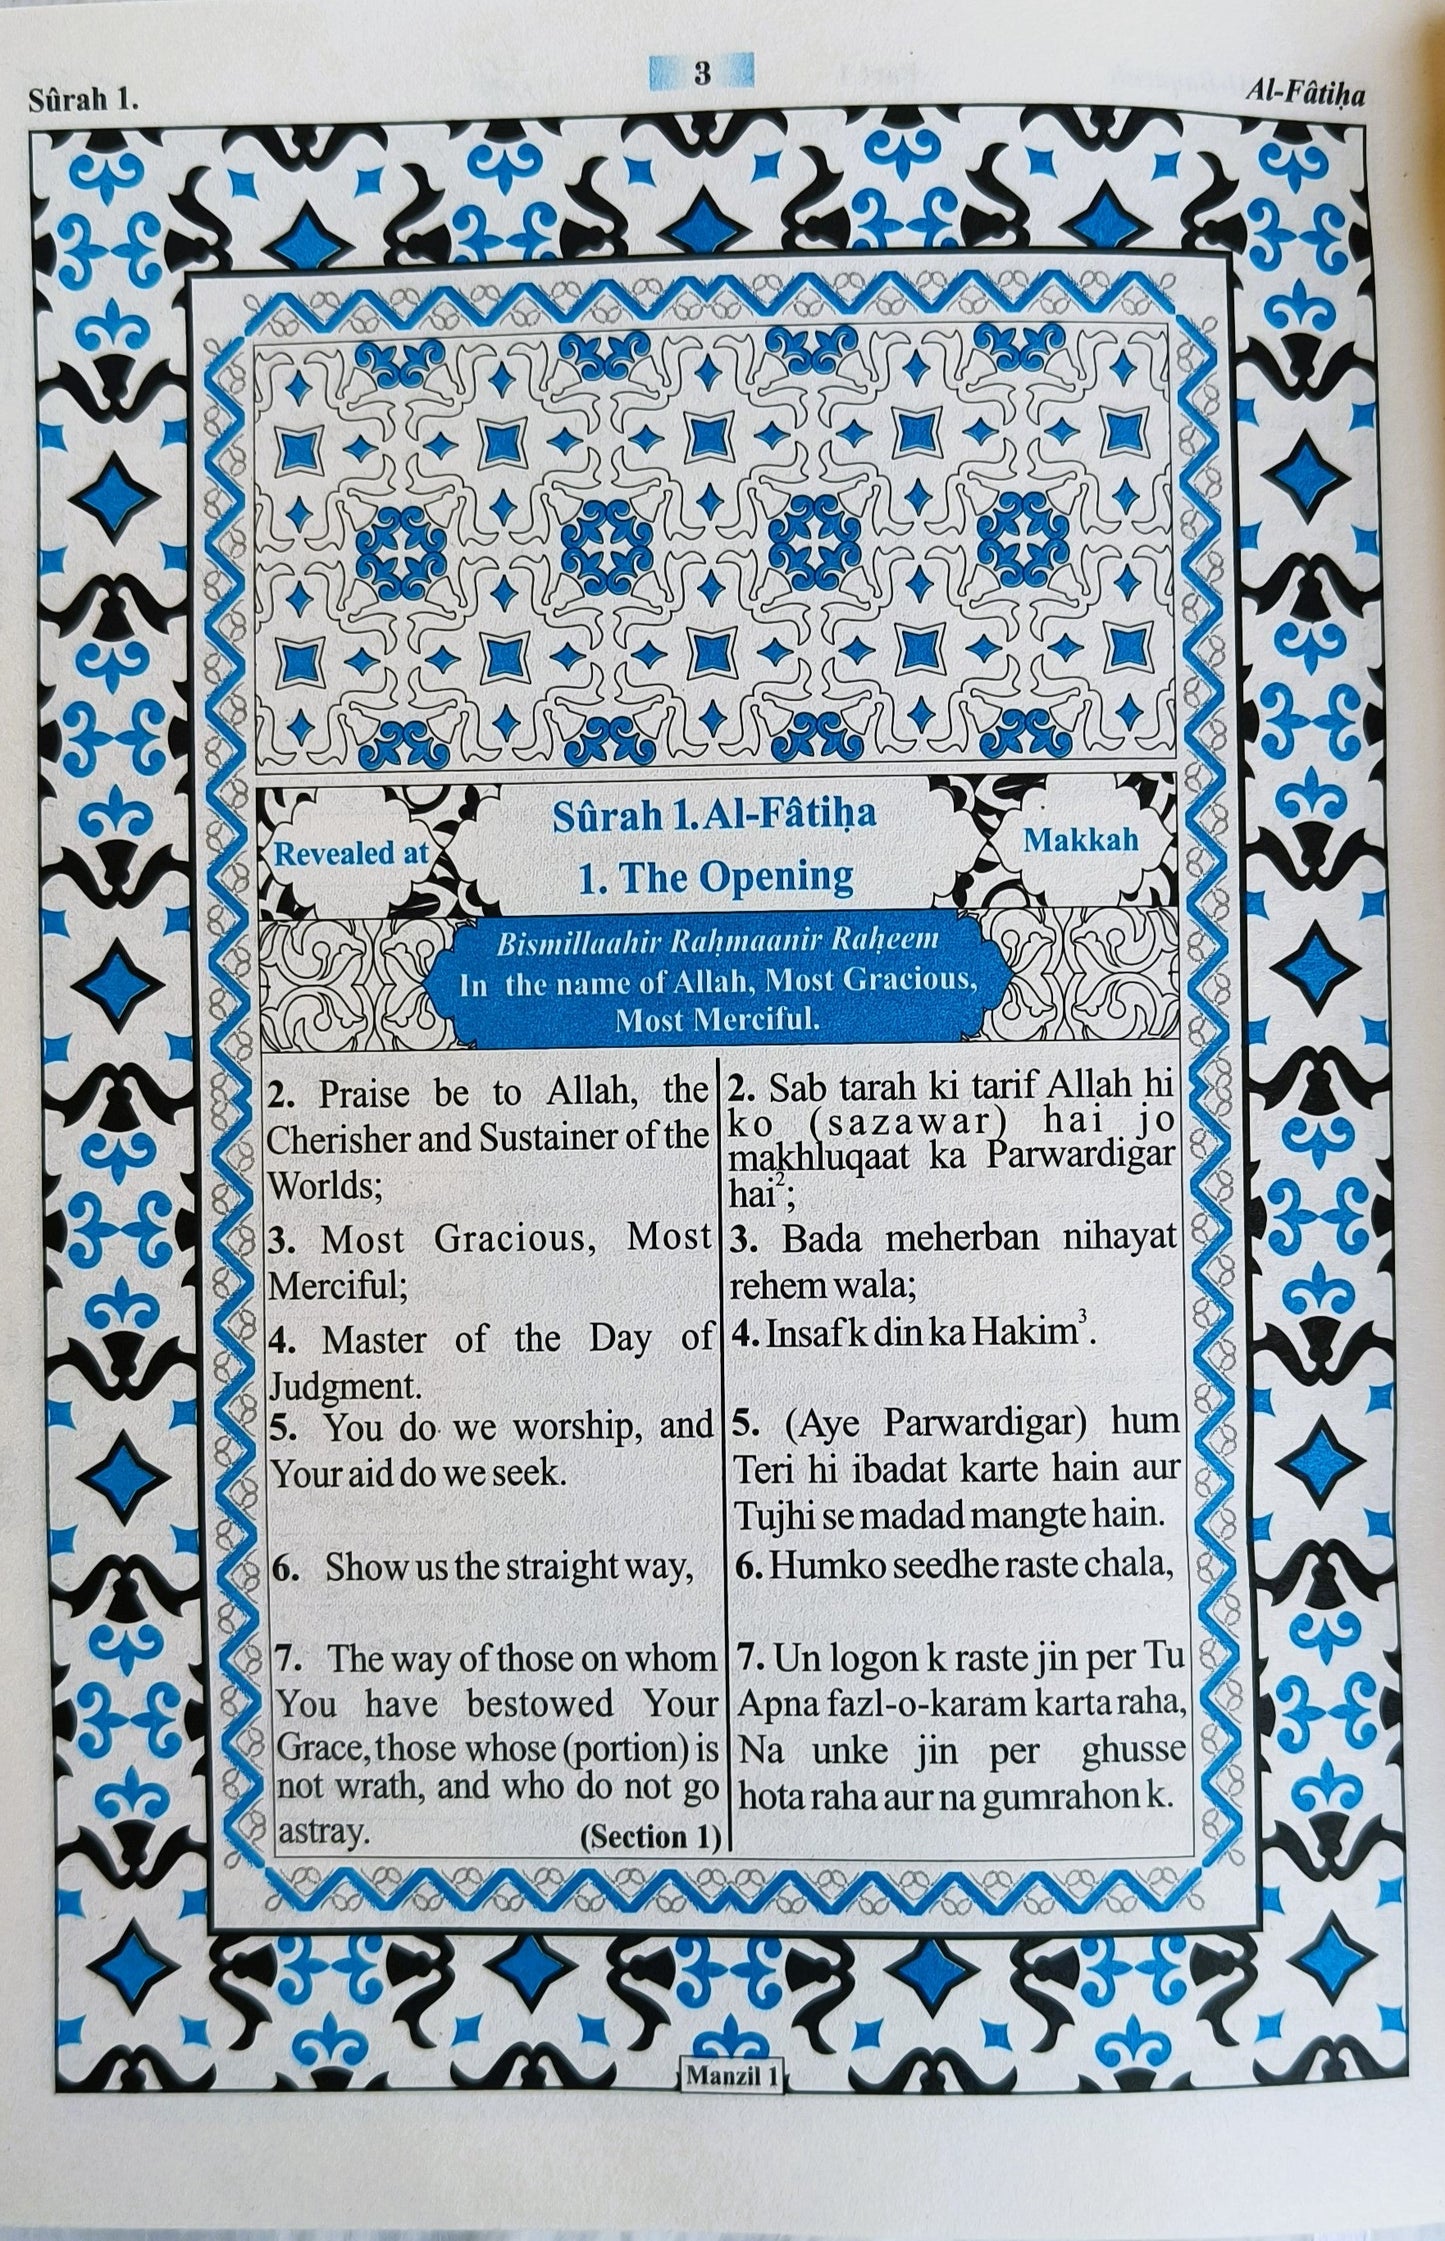 Sûrah 1.
3
Al-Fâtiḥa
Revealed at
Sûrah 1.Al-Fâtiḥa
1. The Opening
Makkah
Bismillaahir Raḥmaanir Raḥeem
In the name of Allah, Most Gracious,
Most Merciful.
2. Praise be to Allah, the
Cherisher and Sustainer of the
Worlds;
3. Most Gracious, Most
Merciful;
4. Master of the Day of
Judgment.
5. You do we worship, and
Your aid do we seek.
6. Show us the straight way,
7. The way of those on whom
You have bestowed Your
Grace, those whose (portion) is
not wrath, and who do not go
astray. (Section 1)
2. Sab tarah ki tarif Allah hi
ko (sazawar) hai jo
makhluqaat ka Parwardigar
hai²;
3. Bada meherban nihayat
rehem wala;
4. Insaf k din ka Hakim³.
5. (Aye Parwardigar) hum
Teri hi ibadat karte hain aur
Tujhi se madad mangte hain.
6. Humko seedhe raste chala,
7. Un logon k raste jin per Tu
Apna fazl-o-karam karta raha,
Na unke jin per ghusse
hota raha aur na gumrahon k.
Manzil 1